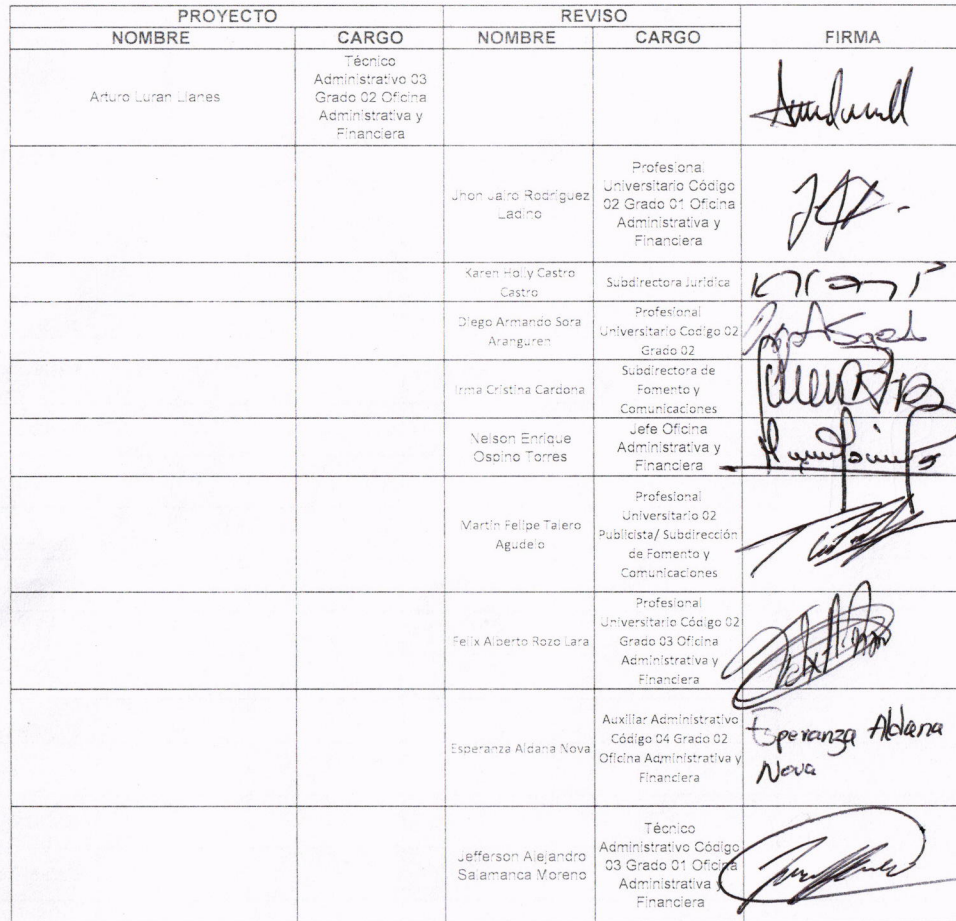 PROYECTO REVISO
NOMBRE CARGO NOMBRE CARGO FIRMA
Arturo Luran Llanes
Técnico
Administrativo 03
Grado 02 Oficina
Administrativa y
Financiera
Jhon Jairo Rodríguez
Ladino
Profesional
Universitario Código
02 Grado 01 Oficina
Administrativa y
Financiera
Karen Holly Castro
Castro
Subdirectora Jurídica
Diego Armando Sora
Aranguren
Profesional
Universitario Codigo 02
Grado 02
Irma Cristina Cardona
Subdirectora de
Fomento y
Comunicaciones
Nelson Enrique
Ospino Torres
Jefe Oficina
Administrativa y
Financiera
Martín Felipe Talero
Agudelo
Profesional
Universitario 02
Publicista/ Subdirección
de Fomento y
Comunicaciones
Felix Alberto Rozo Lara
Profesional
Universitario Código 02
Grado 03 Oficina
Administrativa y
Financiera
Esperanza Aldana Nova
Auxiliar Administrativo
Código 04 Grado 02
Oficina Administrativa y
Financiera
Esperanza Aldana
Nova
Jefferson Alejandro
Salamanca Moreno
Técnico
Administrativo Código
03 Grado 01 Oficina
Administrativa y
Financiera